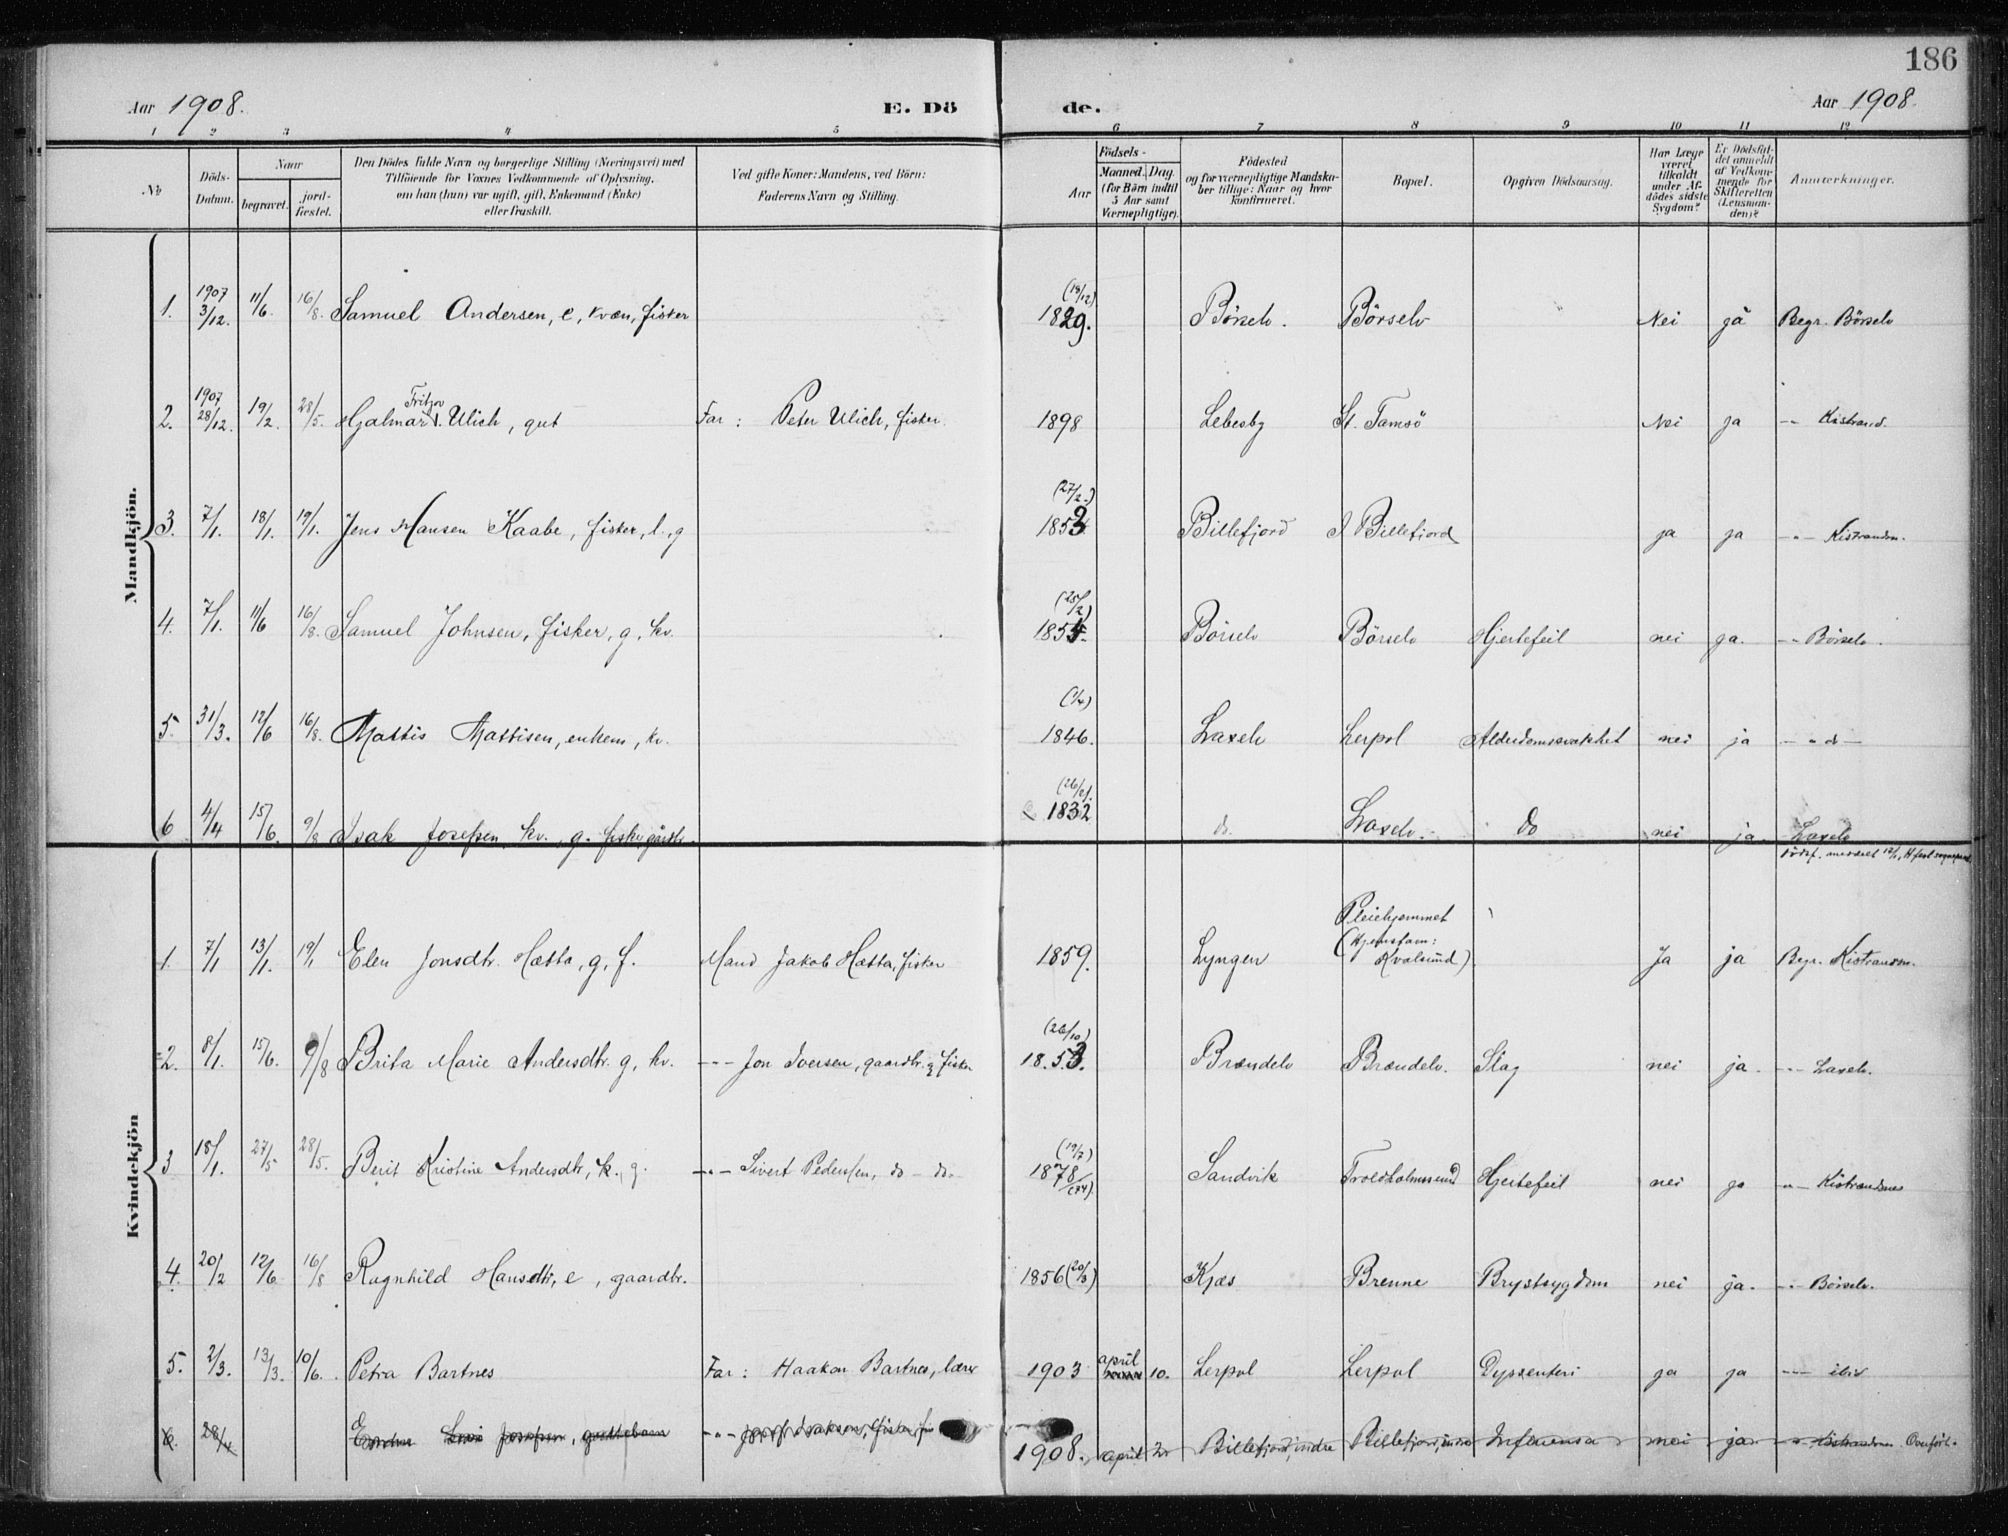 186
Aar 1908. E. Dö de. Aar 1908.
1 2 3 4 5 6 7 8 9 10 11 12
No Döds-Datum. Naar begravet. jord-fæstet. Den Dödes fulde Navn og borgerlige Stilling (Næringsvei) med Tilföiende for Voxnes Vedkommende af Oplysning, om han (hun) var ugift, gift, Enkemand (Enke) eller fraskilt. Ved gifte Koner: Mandens, ved Börn: Faderens Navn og Stilling. Födsels- Aar Maaned. Dag. (for Börn indtil 5 Aar samt Værnepligtige). Födested og for værnepligtige Mandskaber tillige: Naar og hvor konfirmeret. Bopæl. Opgiven Dödsaarsag. Har Læge været tilkaldt under Afdödes sidste Sygdom? Er Dödsfaldet anmeldt af Vedkommende for Skifteretten (Lensmanden)? Anmærkninger.
Mandkjön.
1. 1907 3/12. 11/6. 16/8. Samuel Andersen, e, kvæn, fisker (13/12) 1829. Börselv. Börselv Nei ja Begr. Börselv
2. 1907 28/12. 19/2. 28/5. Hjalmar Fritjov Ulich, gut Far: Peter Ulich, fisker. 1898 Lebesby St. Tamsö Nei ja -"- Kistrand.
3. 7/1. 18/1. 19/1. Jens Hansen Kaabe, fisker, l., g (27/2.) 1853 Billefjord I Billefjord ja ja -"- Kistranden.
4. 7/1. 11/6 16/8. Samuel Johnsen, fisker, g, kv. (25/2) 1854. Börselv Börselv Hjertefeil nei ja. -"- Börselv.
5. 31/3. 12/6 16/8. Mattis Mattisen, enkem, kv. (1/4) 1846. Laxelv Lerpol Alderdomssvakhet nei ja -"- do -
6 4/4 15/6. 9/8 Isak Josefsen kv., g. fisker, gårdbr. (26/2). 1832 do. Laxelv. do nei ja. Laxelv
Kvindekjön
1. 7/1 13/1. 19/1 Elen Jonsdtr. Hætta, g, f. Mand Jakob Hætta, fisker 1859. Lyngen Pleiehjemmet (Hjemstam: Kvalsund). Ja ja Begr. Kistranden.
2. 8/1. 15/6. 9/8 Brita Marie Andersdtr. g, kv. -"- Jon Iversen, gaardbr. & fisker (26/10) 1853. Brændelv Brændelv. Slag nei ja. -"- Laxelv.
3 18/1. 27/5 28/5. Berit Kristine Andersdtr, k. g. -"- Sivert Pedersen, do - do (19/2) 1878/(74) Sandvik Troldholmssund Hjertefeil nei ja -"- Kistrandnes
4. 20/2 12/6. 16/8 Ragnhild Hansdtr, e, gaardbr. 1856 (20/3) Kjæs Brenne Brystsygdom nei ja. -"- Börselv.
5. 2/3. 13/3. 10/6. Petra Bartnes Far: Haakon Bartnes, lærer 1903 april 10. Lerpol Lerpol Dyssenteri ja ja
6. 28/4 Josefsen, guttebarn -"- Josef Isaksen, fisker 1908. april Billefjord, indre Billefjord, indre Influensa nei ja -"- Kistranden. Overfört.